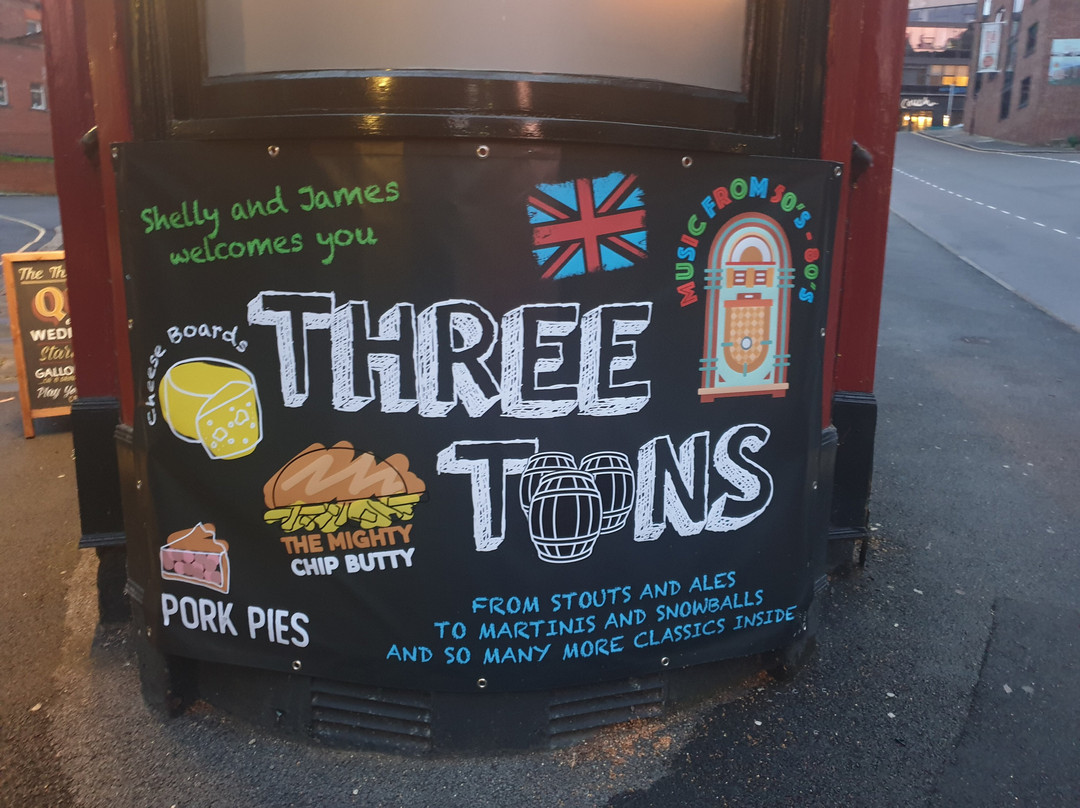 Shelly and James
welcomes you
MUSIC FROM 50's - 80's
Cheese Boards
THREE
TONS
THE MIGHTY
CHIP BUTTY
PORK PIES
FROM STOUTS AND ALES
TO MARTINIS AND SNOWBALLS
AND SO MANY MORE CLASSICS INSIDE
The Th
Q
WED
Star
GALLO
Play Yo